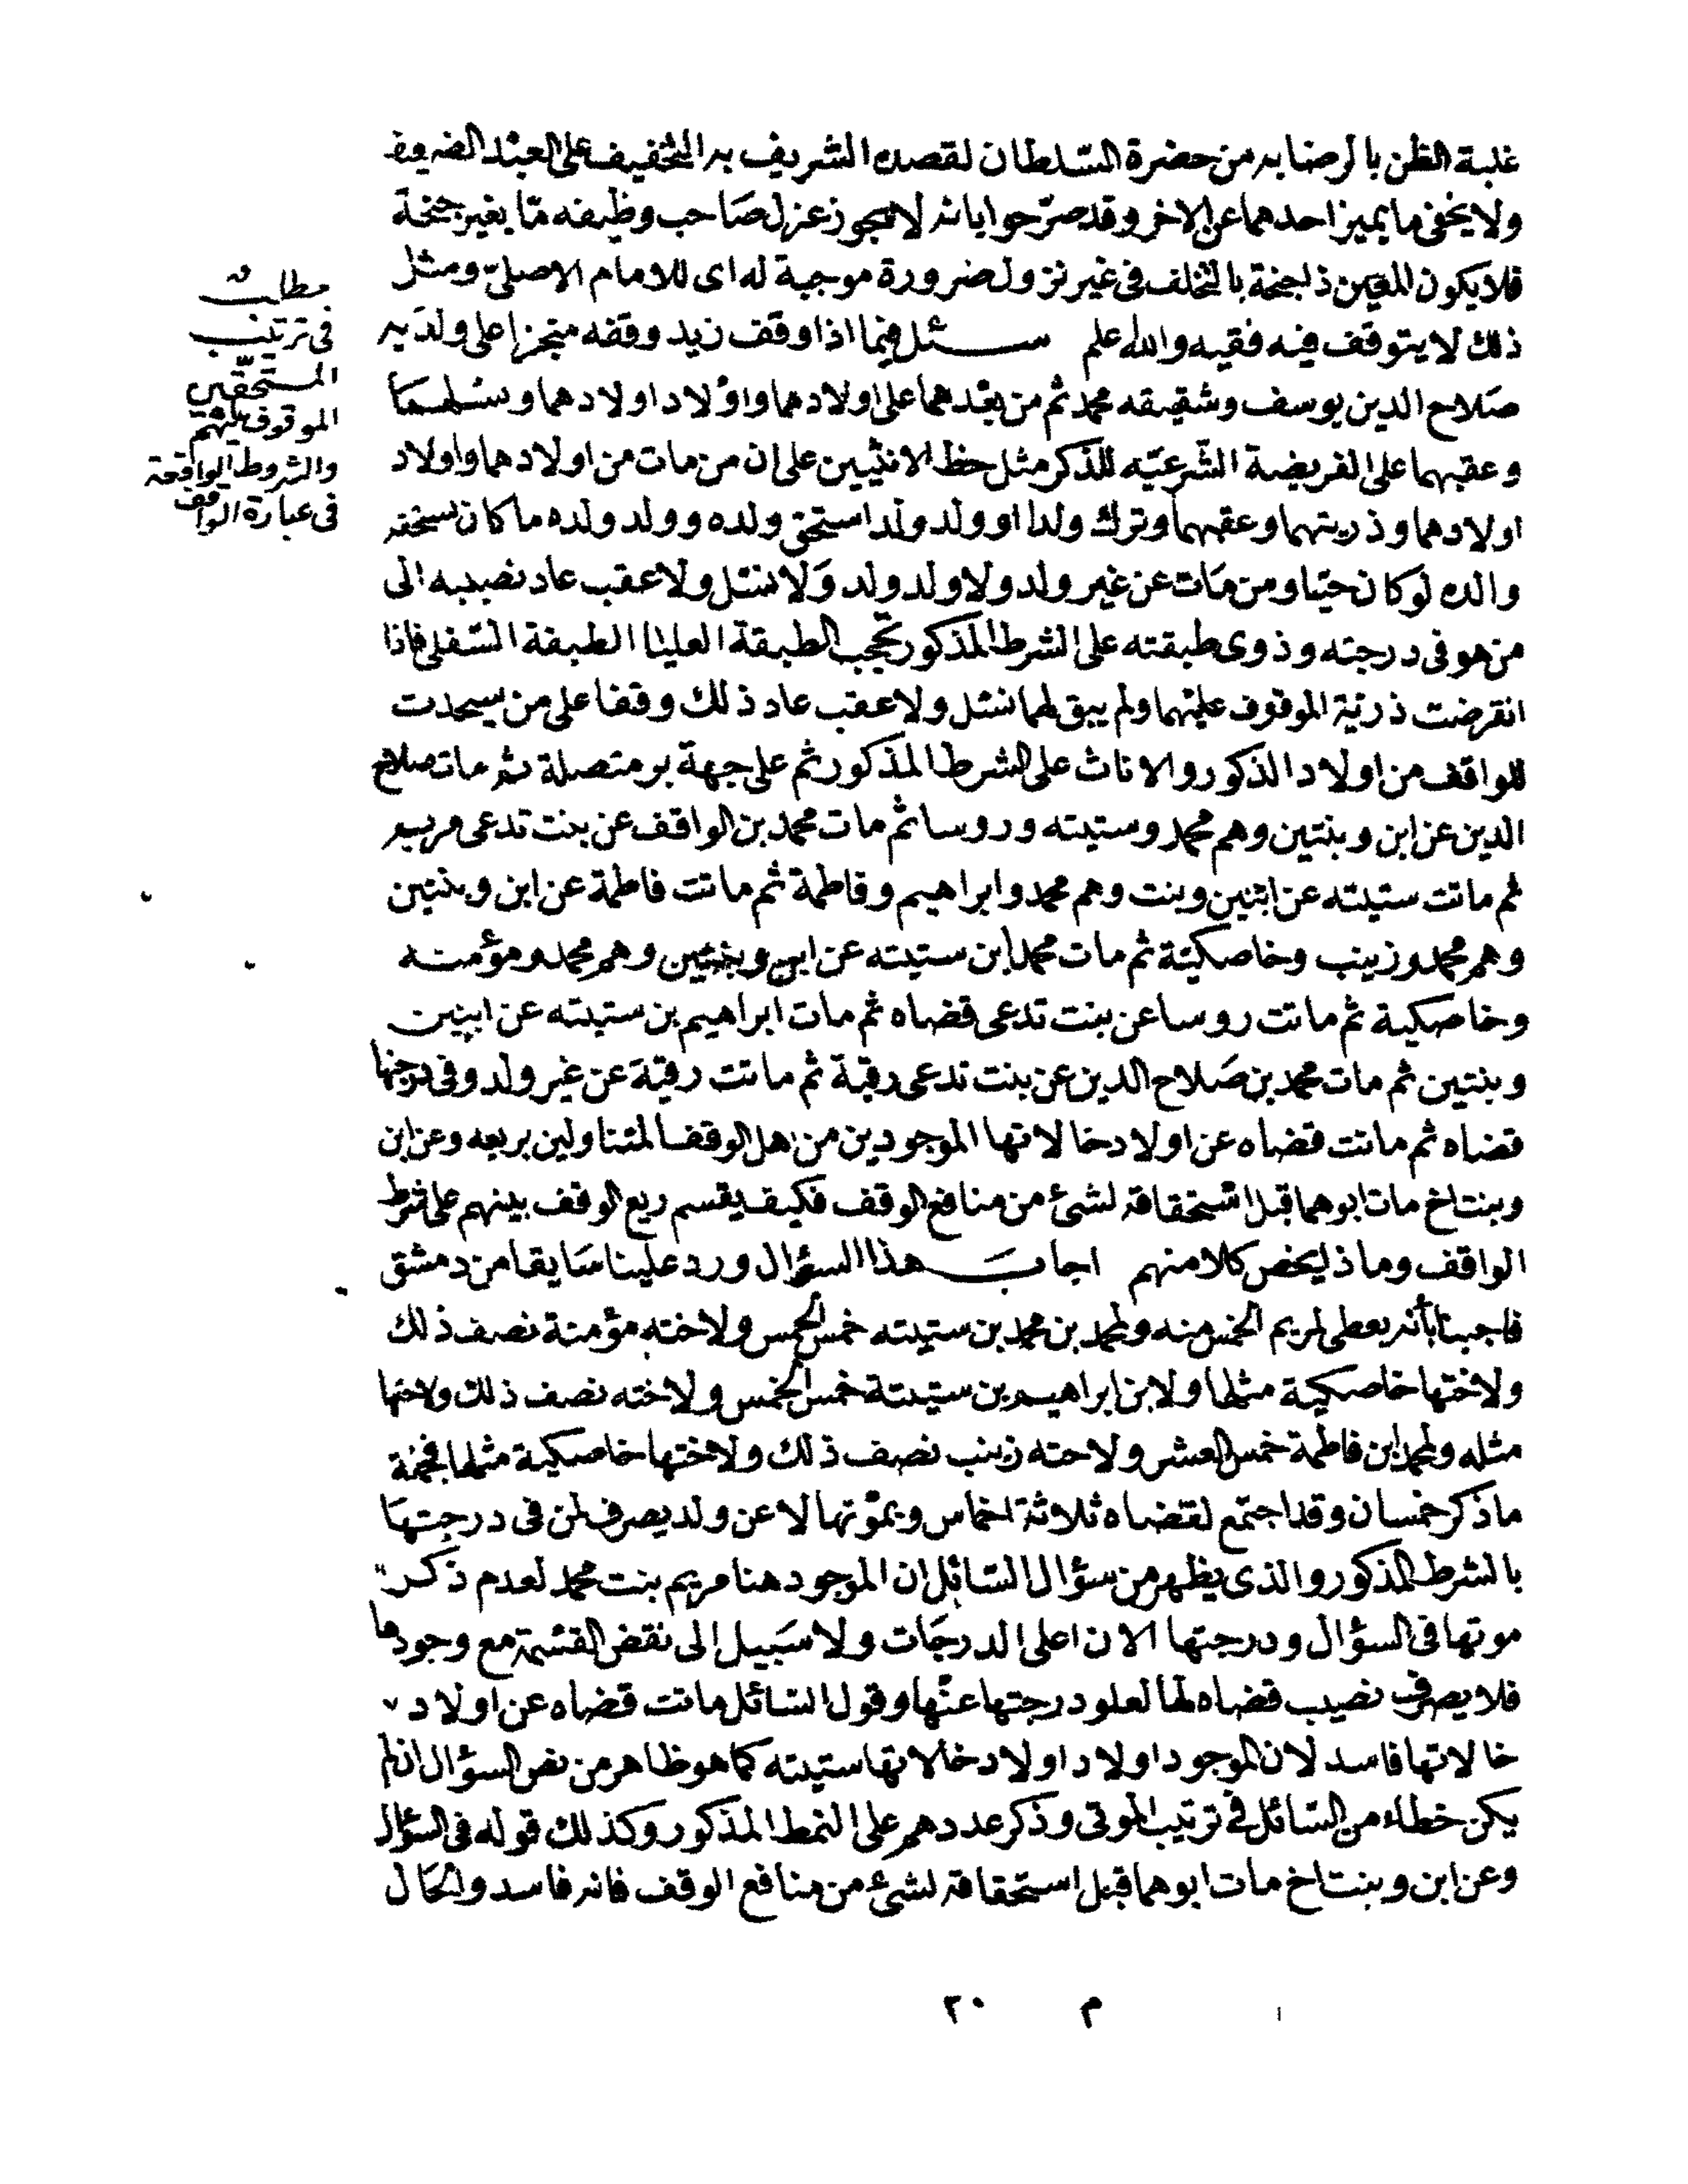 غلبة الظن بالرضا به من حضرة السلطان لقصده الشريف به التخفيف على العبد الضعيف
ولا يخفى ما يميز احدهما عن الاخر وقد صرّحوا بانه لا يجوز عزل صاحب وظيفه مّا بغير جنحة
فلا يكون المعين ذا جنحة بالتخلف فى غير نزول ضرورة موجبة له اى للامام الاصليّ ومثل
ذلك لا يتوقف فيه فقيه والله اعلم سئل فيما اذا وقف زيد وقفه منجزا على ولديه
صلاح الدين يوسف وشقيقه محمد ثم من بعدهما على اولادهما واولاد اولادهما ونسلهما
وعقبهما على الفريضة الشّرعيّه للذكر مثل حظ الانثيين على ان من مات من اولادهما واولاد
اولادهما وذريتهما وعقبهما وترك ولدا او ولد ولد استحق ولده وولد ولده ما كان يستحقه
والده لو كان حيّا ومن مات عن غير ولد ولا ولد ولد ولا نسل ولا عقب عاد نصيبه الى
من هو فى درجته وذوى طبقته على الشرط المذكور تحجب الطبقة العليا الطبقة السّفلى فاذا
انقرضت ذريّة الموقوف عليهما ولم يبق لهما نسل ولا عقب عاد ذلك وقفا على من سيحدث
للواقف من اولاد الذكور والاناث على الشرط المذكور ثم على جهة بر متصلة ثم مات صلاح
الدين عن ابن وبنتين وهم محمد وستيته وروسا ثم مات محمد بن الواقف عن بنت تدعى مريم
ثم ماتت ستيته عن ابنين وبنت وهم محمد وابراهيم وفاطمة ثم ماتت فاطمة عن ابن وبنتين
وهم محمد وزينب وخاصكيّة ثم مات محمد ابن ستيته عن ابن وبنتين وهم محمد ومؤمنه
وخاصكية ثم ماتت روسا عن بنت تدعى قضاه ثم مات ابراهيم بن ستيته عن ابنين
وبنتين ثم مات محمد بن صلاح الدين عن بنت تدعى رقية ثم ماتت رقيّة عن غير ولد وفى درجتها
قضاه ثم ماتت قضاه عن اولاد خالاتها الموجودين من اهل الوقف المتناولين بريعه وعن ابن
وبنت اخ مات ابوهما قبل استحقاقه لشئ من منافع الوقف فكيف يقسم ريع الوقف بينهم على شرط
الواقف وماذا يخص كلا منهم اجاب هذا السؤال ورد علينا سابقا من دمشق
فاجبنا بأنه يعطى لمريم الخمس منه ولمحمد بن محمد بن ستيته خمس الخمس ولاخته مؤمنة نصف ذلك
ولاختها خاصكية مثلها ولابن ابراهيم بن ستيتة خمس الخمس ولاخته نصف ذلك ولاختها
مثله ولمحمد ابن فاطمة خمس العشر ولاخته زينب نصف ذلك ولاختها خاصكية مثلها فجملة
ما ذكر خمسان وقد اجتمع لقضاه ثلاثة اخماس وبموتها لا عن ولد يصرف لمن فى درجتها
بالشرط المذكور والذى يظهر من سؤال السّائل ان الموجود هنا مريم بنت محمد لعدم ذكر
موتها فى السؤال ودرجتها الان اعلى الدرجات ولا سبيل الى نقض القسمة مع وجودها
فلا يصرف نصيب قضاه لها لعلو درجتها عنها وقول السّائل ماتت قضاه عن اولاد
خالاتها فاسد لان الموجود اولاد اولاد خالاتها ستيته كما هو ظاهر من نص السؤال ان لم
يكن خطاء من السّائل فى ترتيب الموتى وذكر عددهم على النمط المذكور وكذلك قوله فى السؤال
وعن ابن وبنت اخ مات ابوهما قبل استحقاقه لشئ من منافع الوقف فانه فاسد والحال
مطلب
فى ترتيب
المستحقّين
الموقوف عليهم
والشروط الواقعة
فى عبارة الواقف
م ٢٠